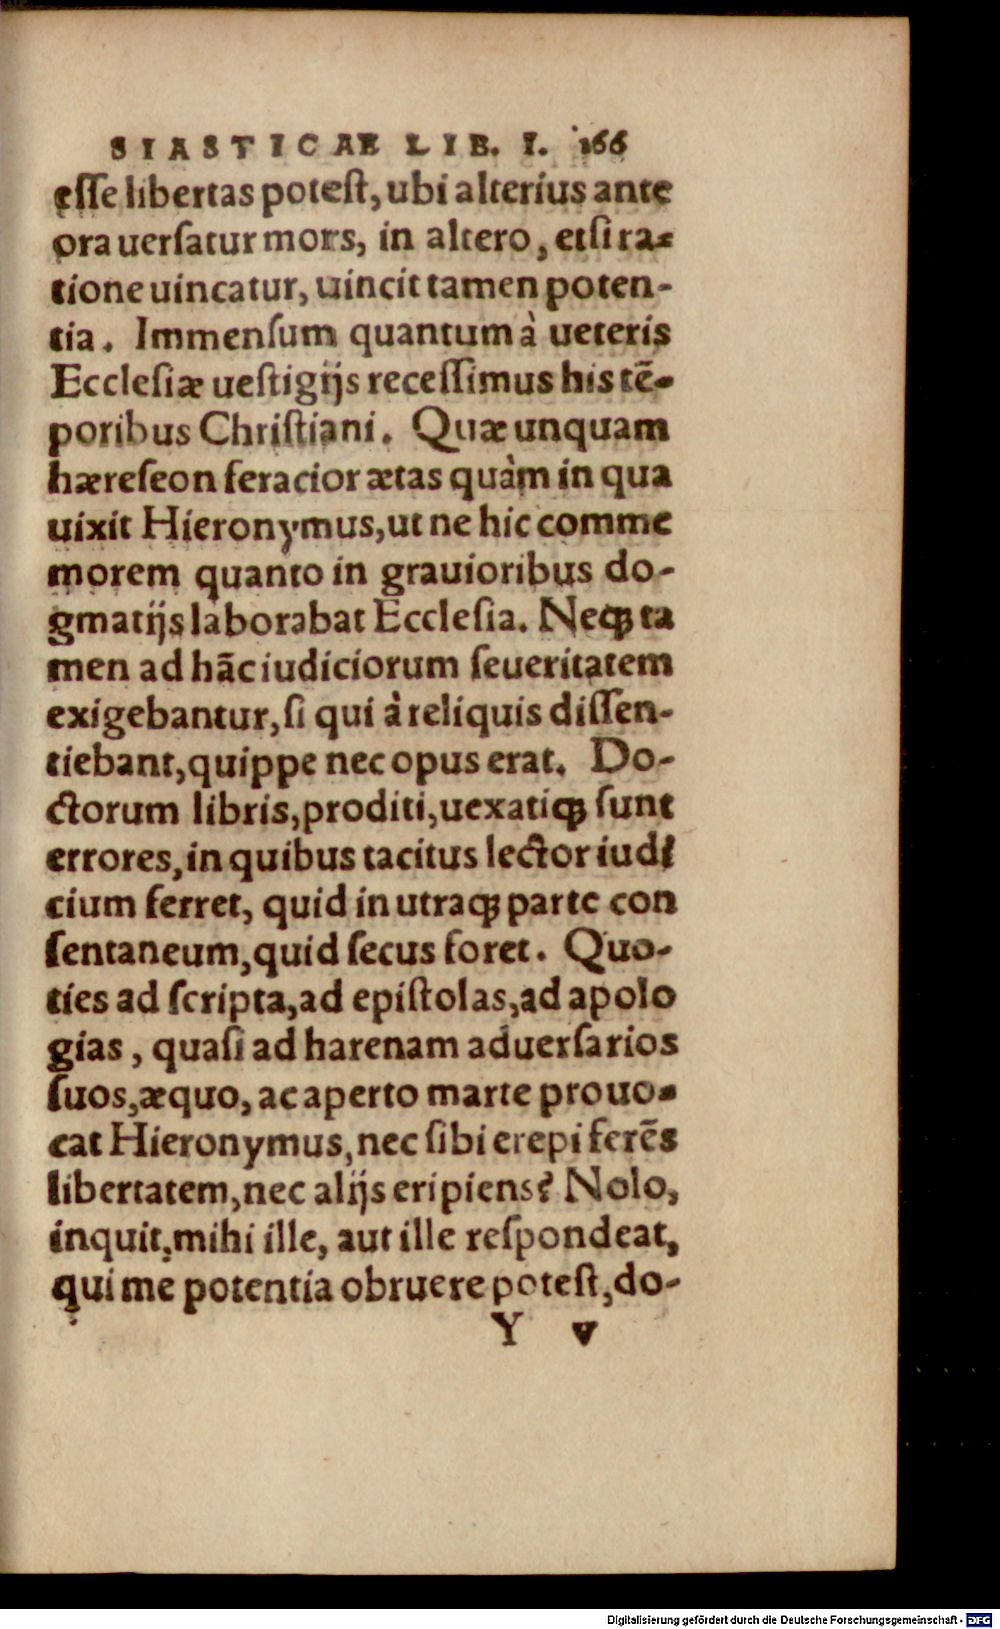 SIASTICAE LIB. I. 166
esse libertas potest, ubi alterius ante
ora uersatur mors, in altero, etsi ra-
tione uincatur, uincit tamen poten-
tia. Immensum quantum à ueteris
Ecclesiæ uestigijs recessimus his tẽ-
poribus Christiani. Quæ unquam
hæreseon feracior ætas quàm in qua
uixit Hieronymus, ut ne hic comme
morem quanto in grauioribus do-
gmatijs laborabat Ecclesia. Neq́ꝫ ta
men ad hãc iudiciorum seueritatem
exigebantur, si qui à reliquis dissen-
tiebant, quippe nec opus erat. Do-
ctorum libris, proditi, uexatiqꝫ sunt
errores, in quibus tacitus lector iudi
cium ferret, quid in utraqꝫ parte con
sentaneum, quid secus foret. Quo-
ties ad scripta, ad epistolas, ad apolo
gias, quasi ad harenam aduersarios
suos, æquo, ac aperto marte prouo-
cat Hieronymus, nec sibi eripi ferẽs
libertatem, nec alijs eripiens? Nolo,
inquit, mihi ille, aut ille respondeat,
qui me potentia obruere potest, do-
Y v
Digitalisierung gefördert durch die Deutsche Forschungsgemeinschaft - DFG